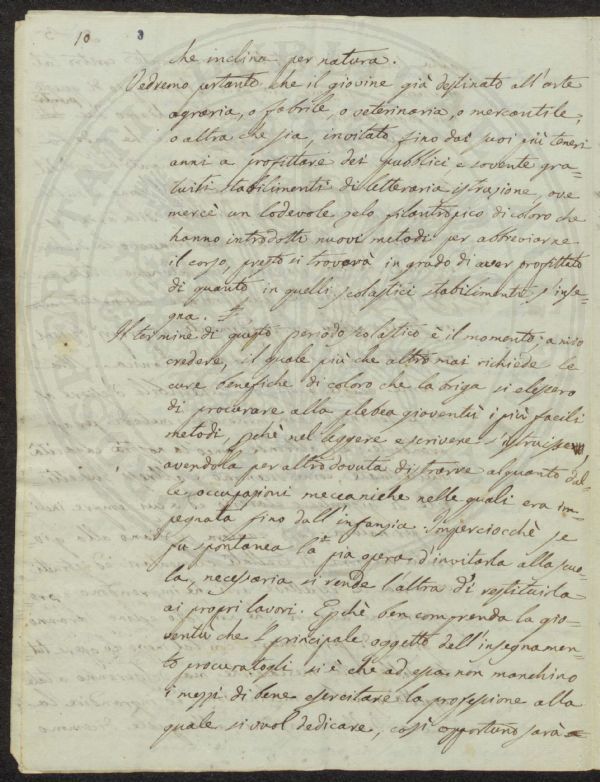 10 3
che inclina per natura.
Vedremo pertanto che il giovine già destinato all'arte
agraria, o fabrile, o veterinaria, o mercantile,
o altra che sia, invitato fino dai suoi più teneri
anni a profittare dei pubblici e sovente gra-
tuiti stabilimenti di letteraria istruzione, ove
mercè un lodevole zelo filantropico di coloro che
hanno introdotti nuovi metodi per abbreviarne
il corso, presto si troverà in grado di aver profittato
di quanto in quelli scolastici stabilimenti s'inse-
gna.
Il termine di questo periodo scolastico è il momento, a mio
credere, il quale più che altro mai richiede le
cure benefiche di coloro che la briga si elessero
di procurare alla plebea gioventù i più facili
metodi, pchè nel leggere e scrivere s'istruisse,
avendola per altro dovuta distrarre alquanto dal-
le occupazioni meccaniche nelle quali era im-
pegnata fino dall'infanzia. Imperciocchè se
fu spontanea la pia opera d'invitarla alla scuo-
la, necessaria si rende l'altra di restituirla
ai propri lavori. E pchè ben comprenda la gio-
ventù che l'principale oggetto dell'insegnamen-
to procuratogli si è che ad essa non manchino
i mezzi di bene esercitare la professione alla
quale si vuol dedicare, così opportuno sarà